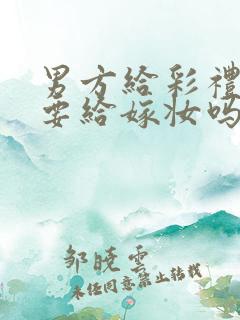 男方給彩禮
要給嫁妝嗎
鄒曉雲
未经同意禁止转载